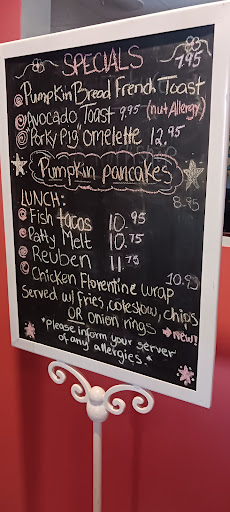 SPECIALS
7.95
Pumpkin Bread French Toast
Avocado Toast 9.95 (nut Allergy)
"Porky Pig" omelette 12.95
Pumpkin pancakes
8.95
LUNCH:
Fish tacos 10.95
Patty Melt 10.75
Reuben 11.75
Chicken Florentine wrap 10.95
Served w/ fries, coleslaw, chips
OR onion rings → new!
*please inform your server
of any allergies.*